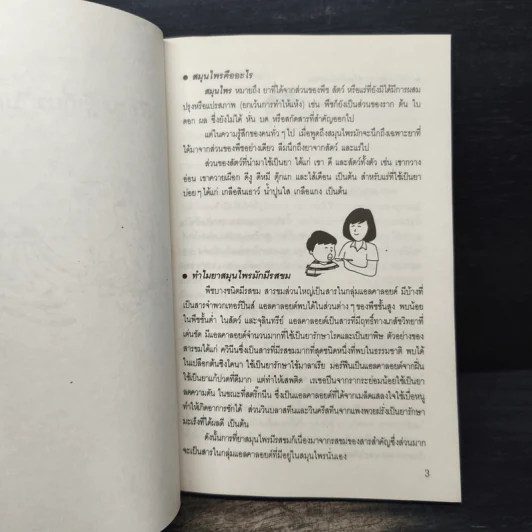 • สมุนไพรคืออะไร
สมุนไพร หมายถึง ยาที่ได้จากส่วนของพืช สัตว์ หรือแร่ที่ยังมิได้มีการผสม
ปรุงหรือแปรสภาพ (ยกเว้นการทำให้แห้ง) เช่น พืชก็ยังเป็นส่วนของราก ต้น ใบ
ดอก ผล ซึ่งยังไม่ได้ หั่น บด หรือสกัดสารที่สำคัญออกไป
แต่ในความรู้สึกของคนทั่วๆ ไป เมื่อพูดถึงสมุนไพรมักจะนึกถึงเฉพาะยาที่
ได้มาจากส่วนของพืชอย่างเดียว ลืมนึกถึงยาจากสัตว์ และแร่ไป
ส่วนของสัตว์ที่นำมาใช้เป็นยา ได้แก่ เขา ดี และสัตว์ทั้งตัว เช่น เขากวาง
อ่อน เขาควายเผือก ดีงู ดีหมี ตุ๊กแก และไส้เดือน เป็นต้น สำหรับแร่ที่ใช้เป็นยา
บ่อยๆ ได้แก่ เกลือสินเธาว์ น้ำปูนใส เกลือแกง เป็นต้น
• ทำไมยาสมุนไพรมักมีรสขม
พืชบางชนิดมีรสขม สารขมส่วนใหญ่เป็นสารในกลุ่มแอลคาลอยด์ มีบ้างที่
เป็นสารจำพวกเทอร์ปีนส์ แอลคาลอยด์พบได้ในส่วนต่างๆ ของพืชชั้นสูง พบน้อย
ในพืชชั้นต่ำ ในสัตว์ และจุลินทรีย์ แอลคาลอยด์เป็นสารที่มีฤทธิ์ทางเภสัชวิทยาที่
เด่นชัด มีแอลคาลอยด์จำนวนมากที่ใช้เป็นยารักษาโรคและเป็นยาพิษ ตัวอย่างของ
สารขมได้แก่ ควินีนซึ่งเป็นสารที่มีรสขมมากที่สุดชนิดหนึ่งที่พบในธรรมชาติ พบได้
ในเปลือกต้นซิงโคนา ใช้เป็นยารักษาไข้มาลาเรีย มอร์ฟีนเป็นแอลคาลอยด์จากฝิ่น
ใช้เป็นยาแก้ปวดที่ดีมาก แต่ทำให้เสพติด เรเซอปีนจากรากระย่อมน้อยใช้เป็นยา
ลดความดัน ในขณะที่สตริ๊กนีน ซึ่งเป็นแอลคาลอยด์ที่ได้จากเมล็ดแสลงใจใช้เบื่อหนู
ทำให้เกิดอาการชักได้ ส่วนวินบลาสทีนและวินคริสทีนจากแพงพวยฝรั่งเป็นยารักษา
มะเร็งที่ได้ผลดี เป็นต้น
ดังนั้นการที่ยาสมุนไพรมีรสขมก็เนื่องมาจากรสขมของสารสำคัญซึ่งส่วนมาก
จะเป็นสารในกลุ่มแอลคาลอยด์ที่มีอยู่ในสมุนไพรนั่นเอง
3